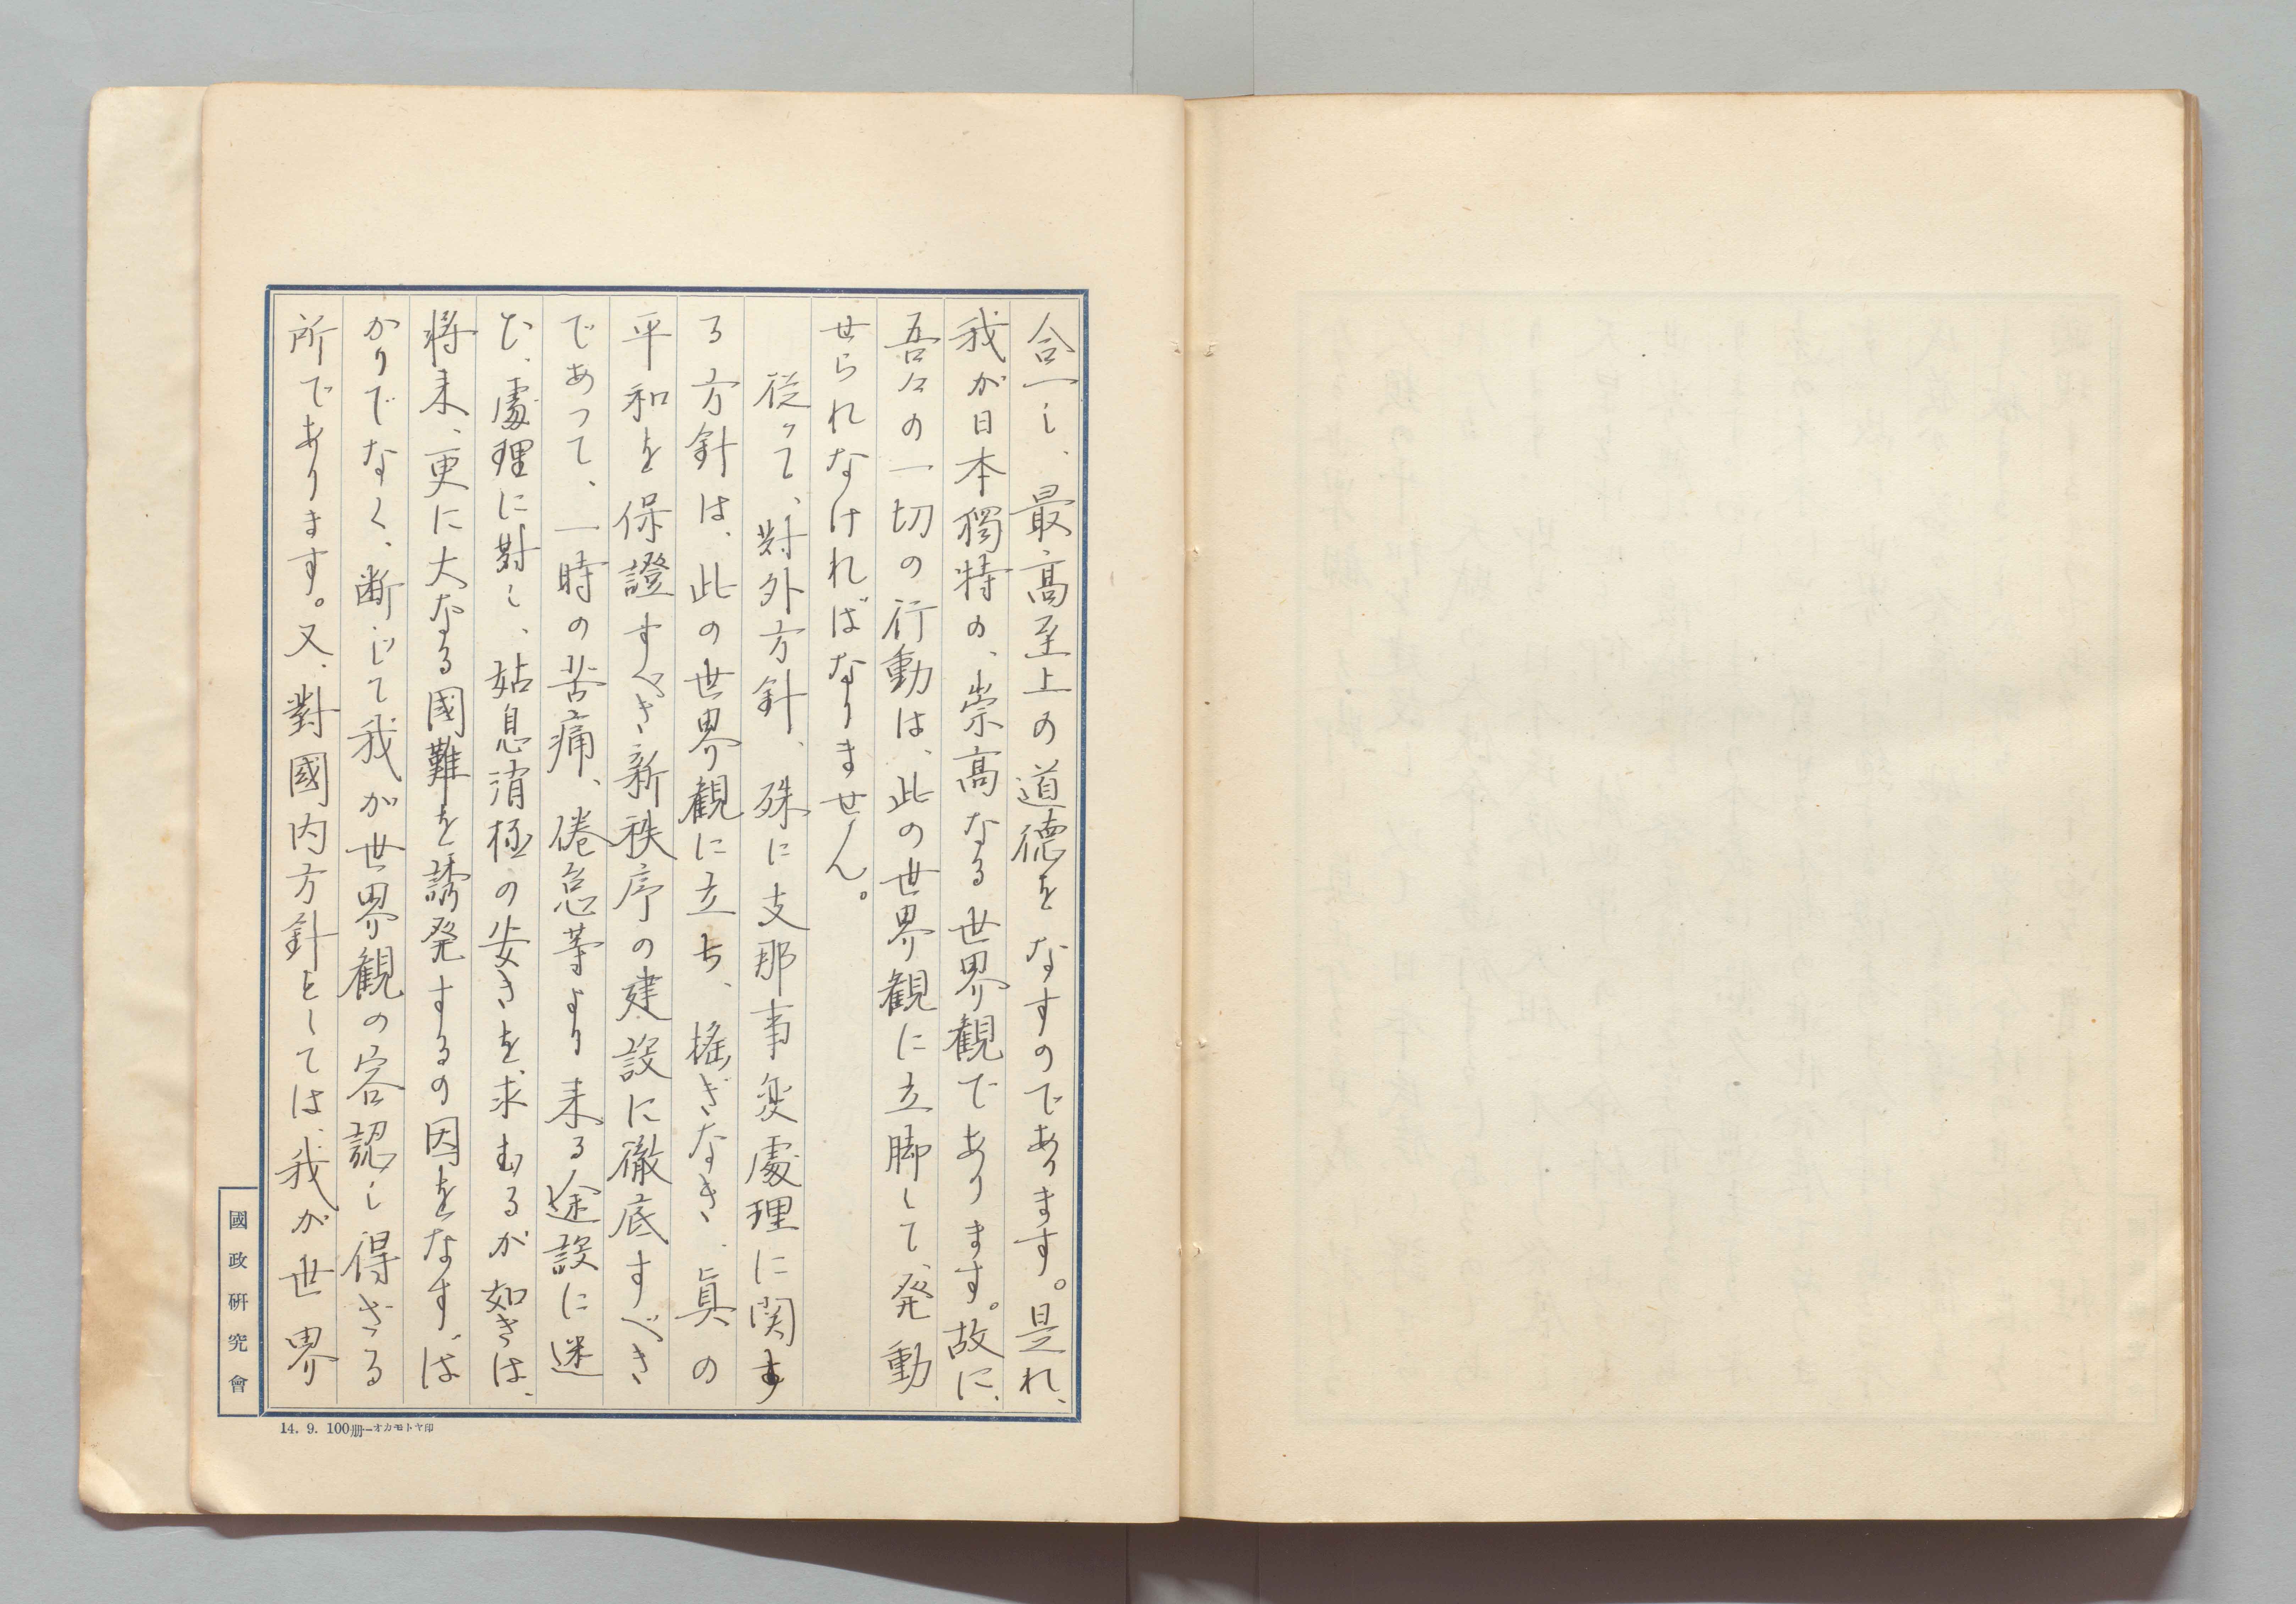 合一し、最高至上の道徳をなすのであります。是れ、
我が日本獨特の、崇高なる世界観であります。故に、
吾々の一切の行動は、此の世界観に立脚して、発動
せられなければなりません。
従って、對外方針、殊に支那事変處理に関す
る方針は、此の世界観に立ち、搖ぎなき、眞の
平和を保證すべき新秩序の建設に徹底すべき
であって、一時の苦痛、倦怠等より来る途説に迷
ひ、處理に對し、姑息消極の安きを求むるが如きは、
将来、更に大なる國難を誘発するの因をなすば
かりでなく、断じて我が世界観の容認し得ざる
所であります。又、對國内方針としては、我が世界
國政研究會
14. 9. 100册―オカモトヤ印